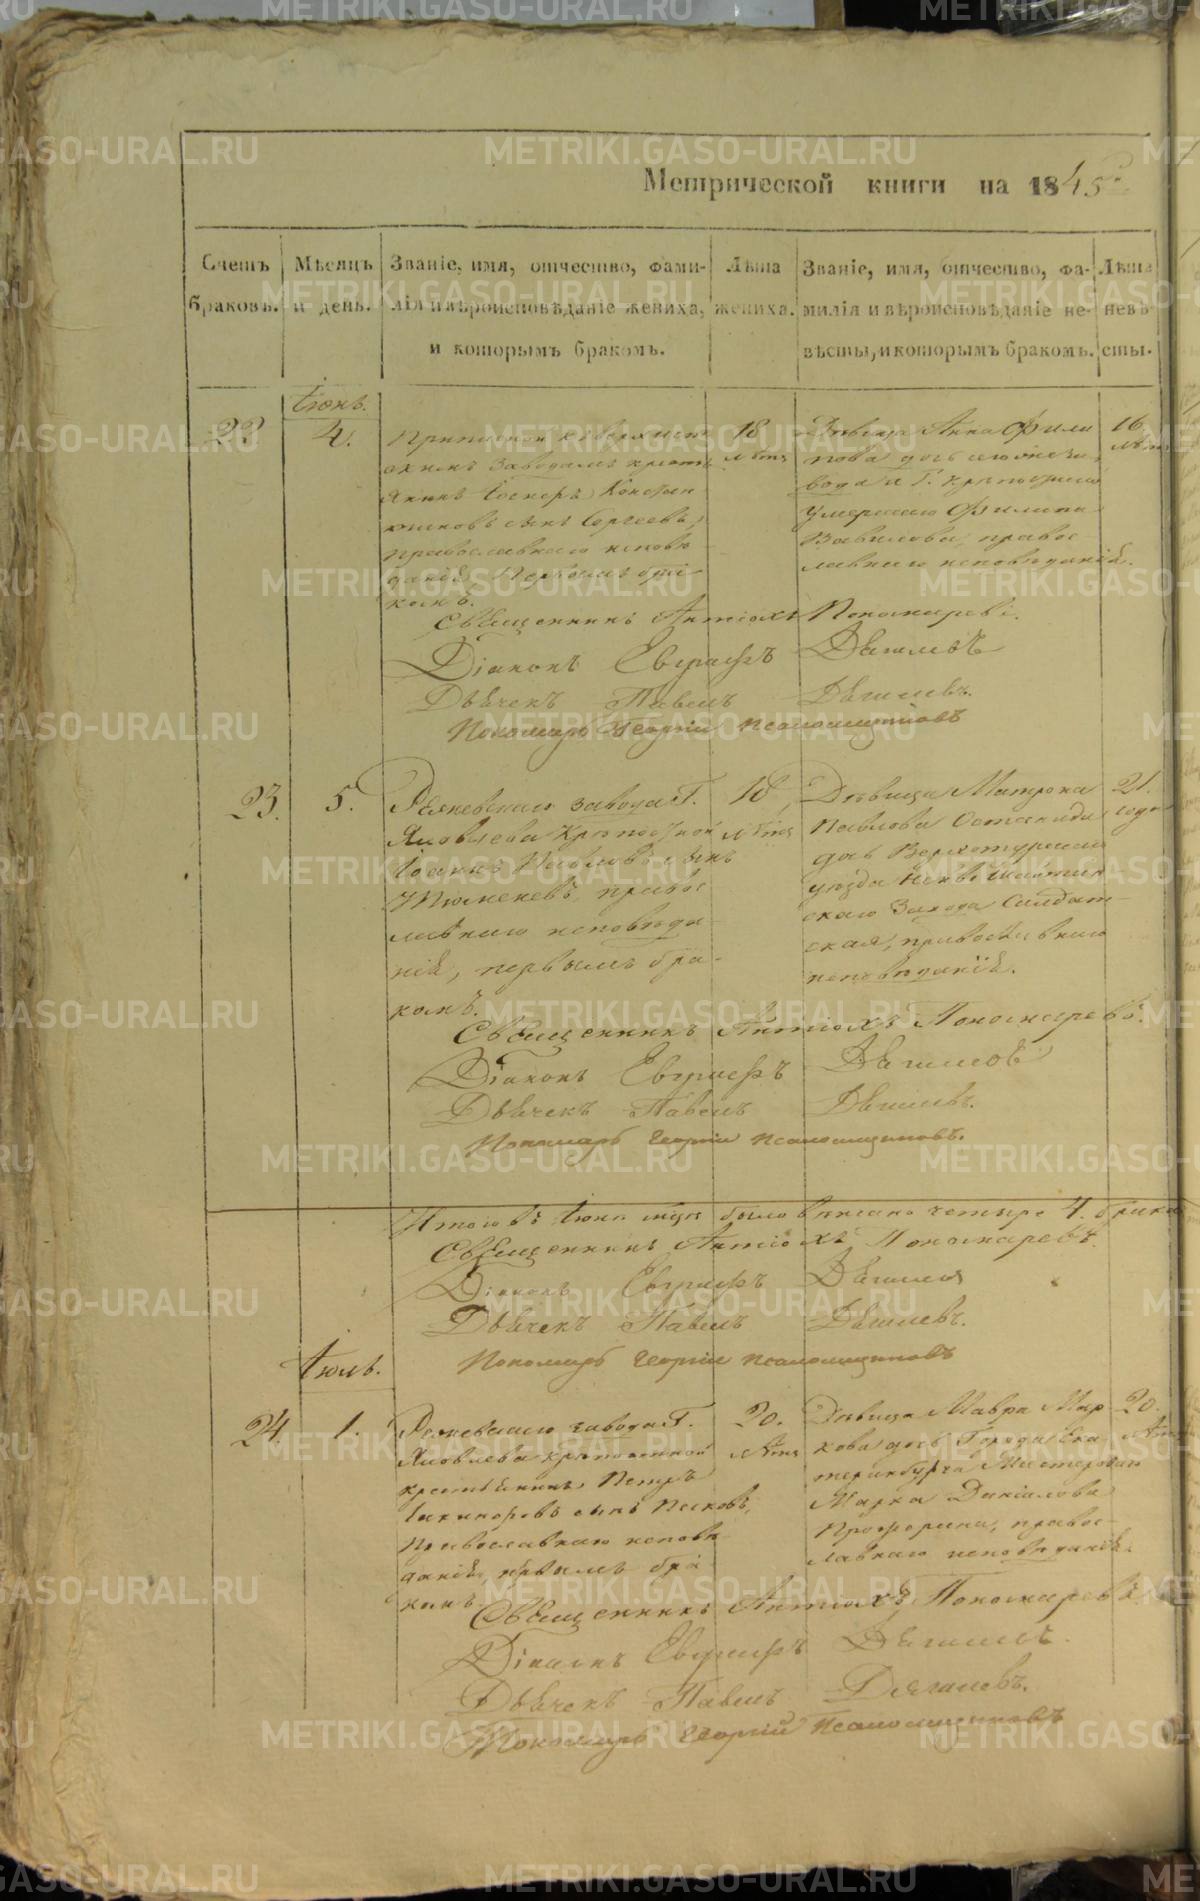 Метрической книги на 1845
Счетъ браковъ.
Мѣсяцъ и день.
Званіе, имя, отчество, фамилія и вѣроисповѣданіе жениха, и которымъ бракомъ.
Лѣта жениха.
Званіе, имя, отчество, фамилія и вѣроисповѣданіе невѣсты, и которымъ бракомъ.
Лѣта невѣсты.
Іюнь.
22
4.
крестьянинъ
сынъ Сергеевъ,
православнаго исповѣ
данія, Первымъ бра
комъ.
18
лѣтъ
Дѣвица Анна Фили
пова дочь
вода Г.
умершаго Филипа
Вавилова, правос
лавнаго исповѣданія.
16
лѣтъ
Священникъ Антіохъ Пономаревъ.
Діаконъ Евграфъ Дягилевъ
Дьячекъ Павелъ Дягилевъ.
Пономарь Георгій Псаломщиковъ
23.
5.
Режевскаго завода Г.
Яковлева Крѣпостной
Іоаннъ Павловъ сынъ
правос
лавнаго исповѣда
нія, первымъ бра
комъ.
18
лѣтъ
Дѣвица Матрона
Павлова
дочь Верхотурскаго
уѣзда Невьшайтан
скаго Завода Салдат
ская, православнаго
исповѣданія.
21.
года
Священникъ Антіохъ Пономаревъ.
Діаконъ Евграфъ Дягилевъ
Дьячекъ Павелъ Дягилевъ.
Пономарь Георгій Псаломщиковъ.
Итого въ Іюнѣ было вѣнчано четыре 4. брака
Священникъ Антіохъ Пономаревъ.
Діаконъ Евграфъ Дягилевъ
Дьячекъ Павелъ Дягилевъ.
Пономарь Георгій Псаломщиковъ
Іюль.
24
1.
Режевскаго завода Г.
Яковлева крѣпостной
крестьянинъ Петръ
сынъ Песковъ,
Православнаго исповѣ
данія, первымъ бра
комъ.
20.
лѣтъ
Дѣвица Мавра Мар
кова дочь Города Ека
теринбурга Мастероваго
Марка Даніилова
правос
лавнаго исповѣданія.
20.
лѣтъ
Священникъ Антіохъ Пономаревъ.
Діаконъ Евграфъ Дягилевъ.
Дьячекъ Павелъ Дягилевъ.
Пономарь Георгій Псаломщиковъ
METRIKI.GASO-URAL.RU